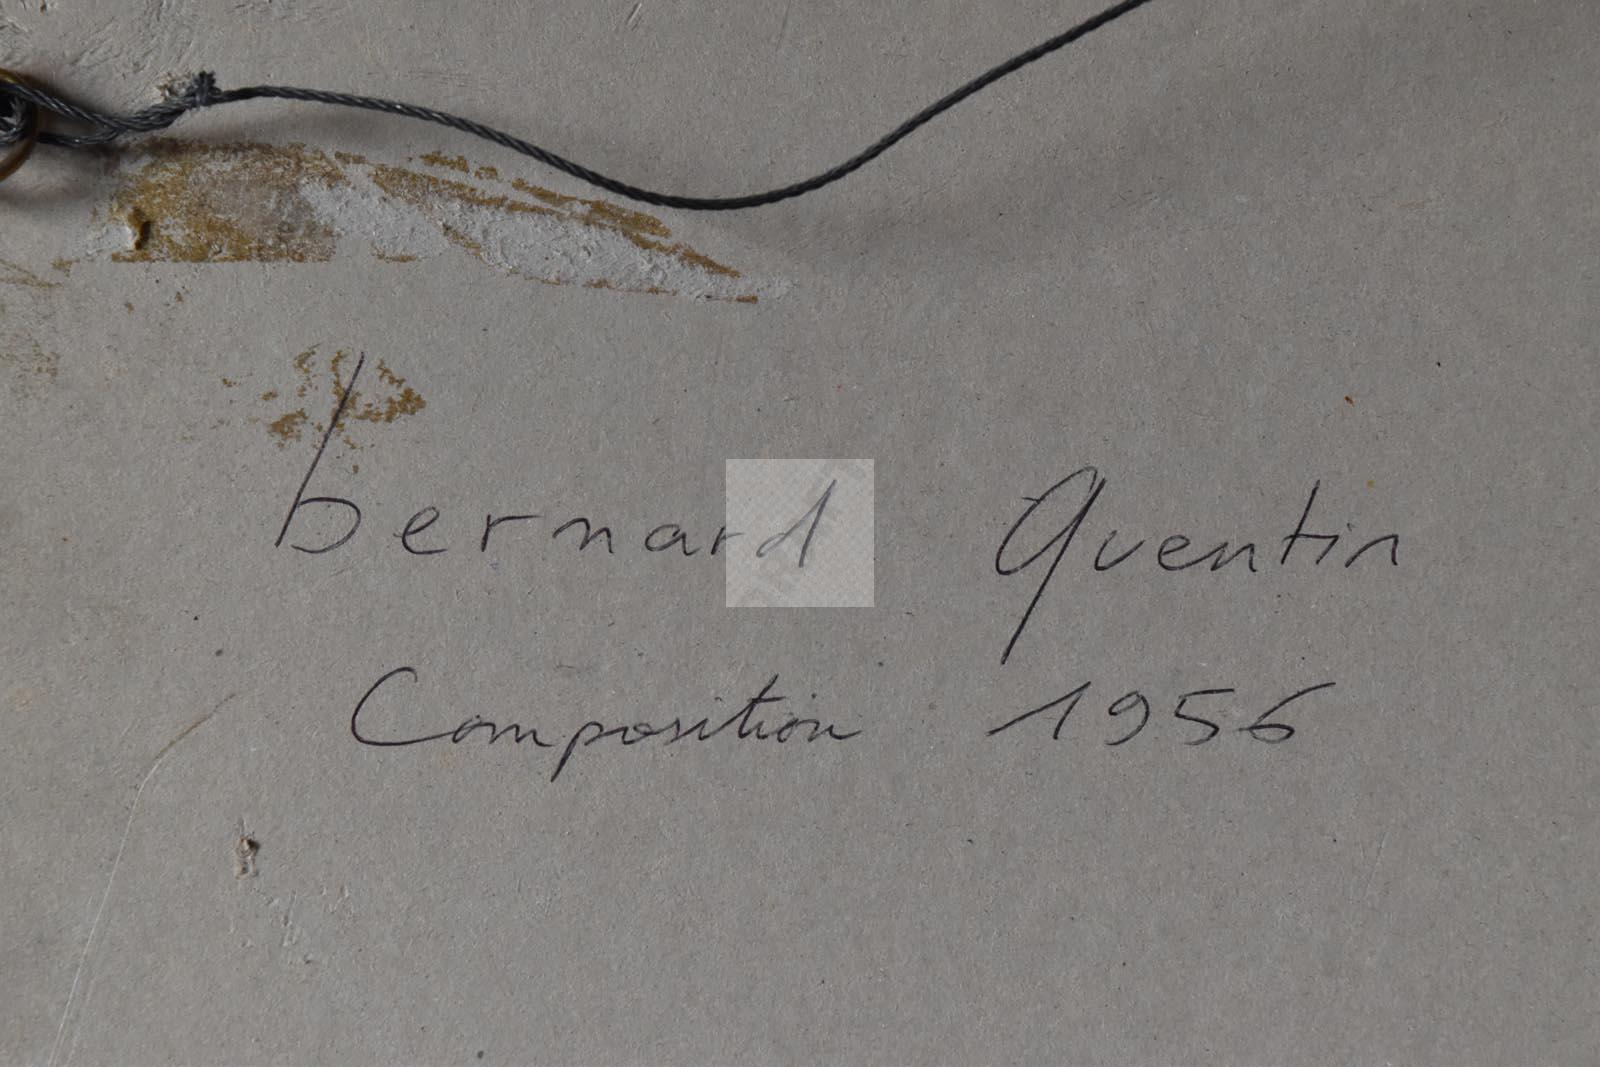 bernard Quentin
Composition 1956